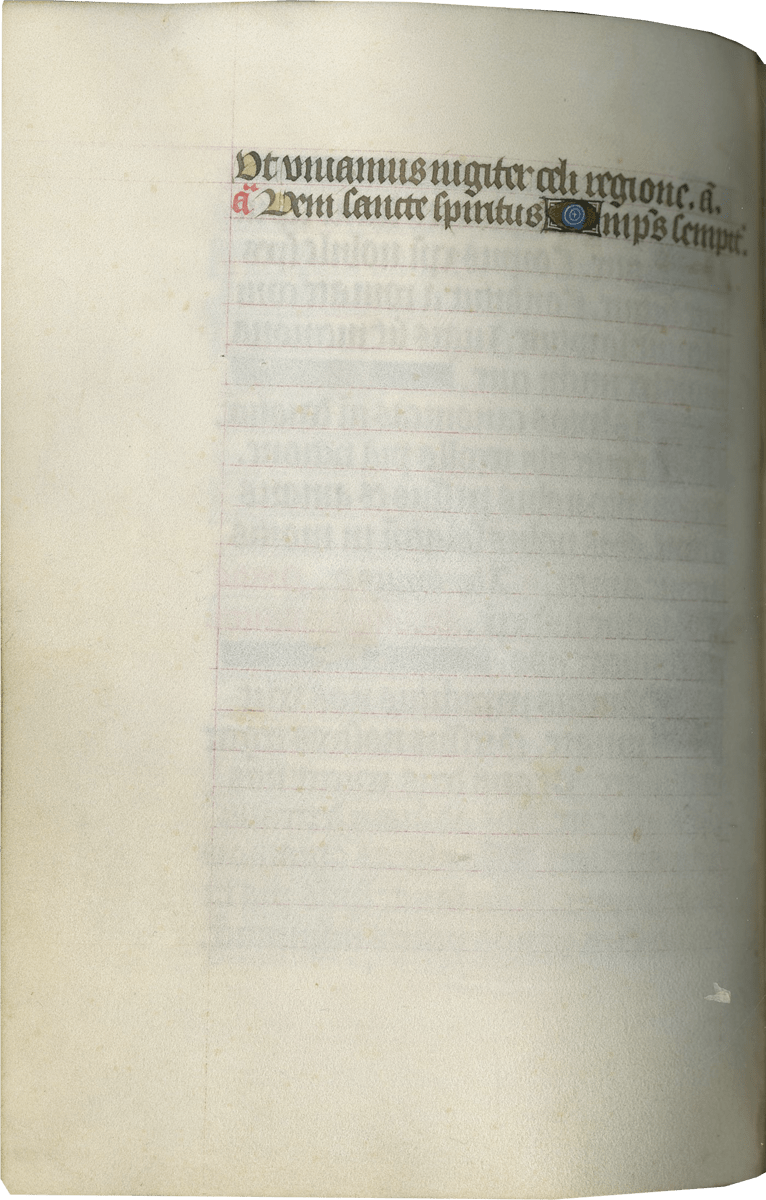 Ut viuamus iugiter celi regione. a̅.
a̅ Veni sancte spiritus Omip̅s sempit̅.